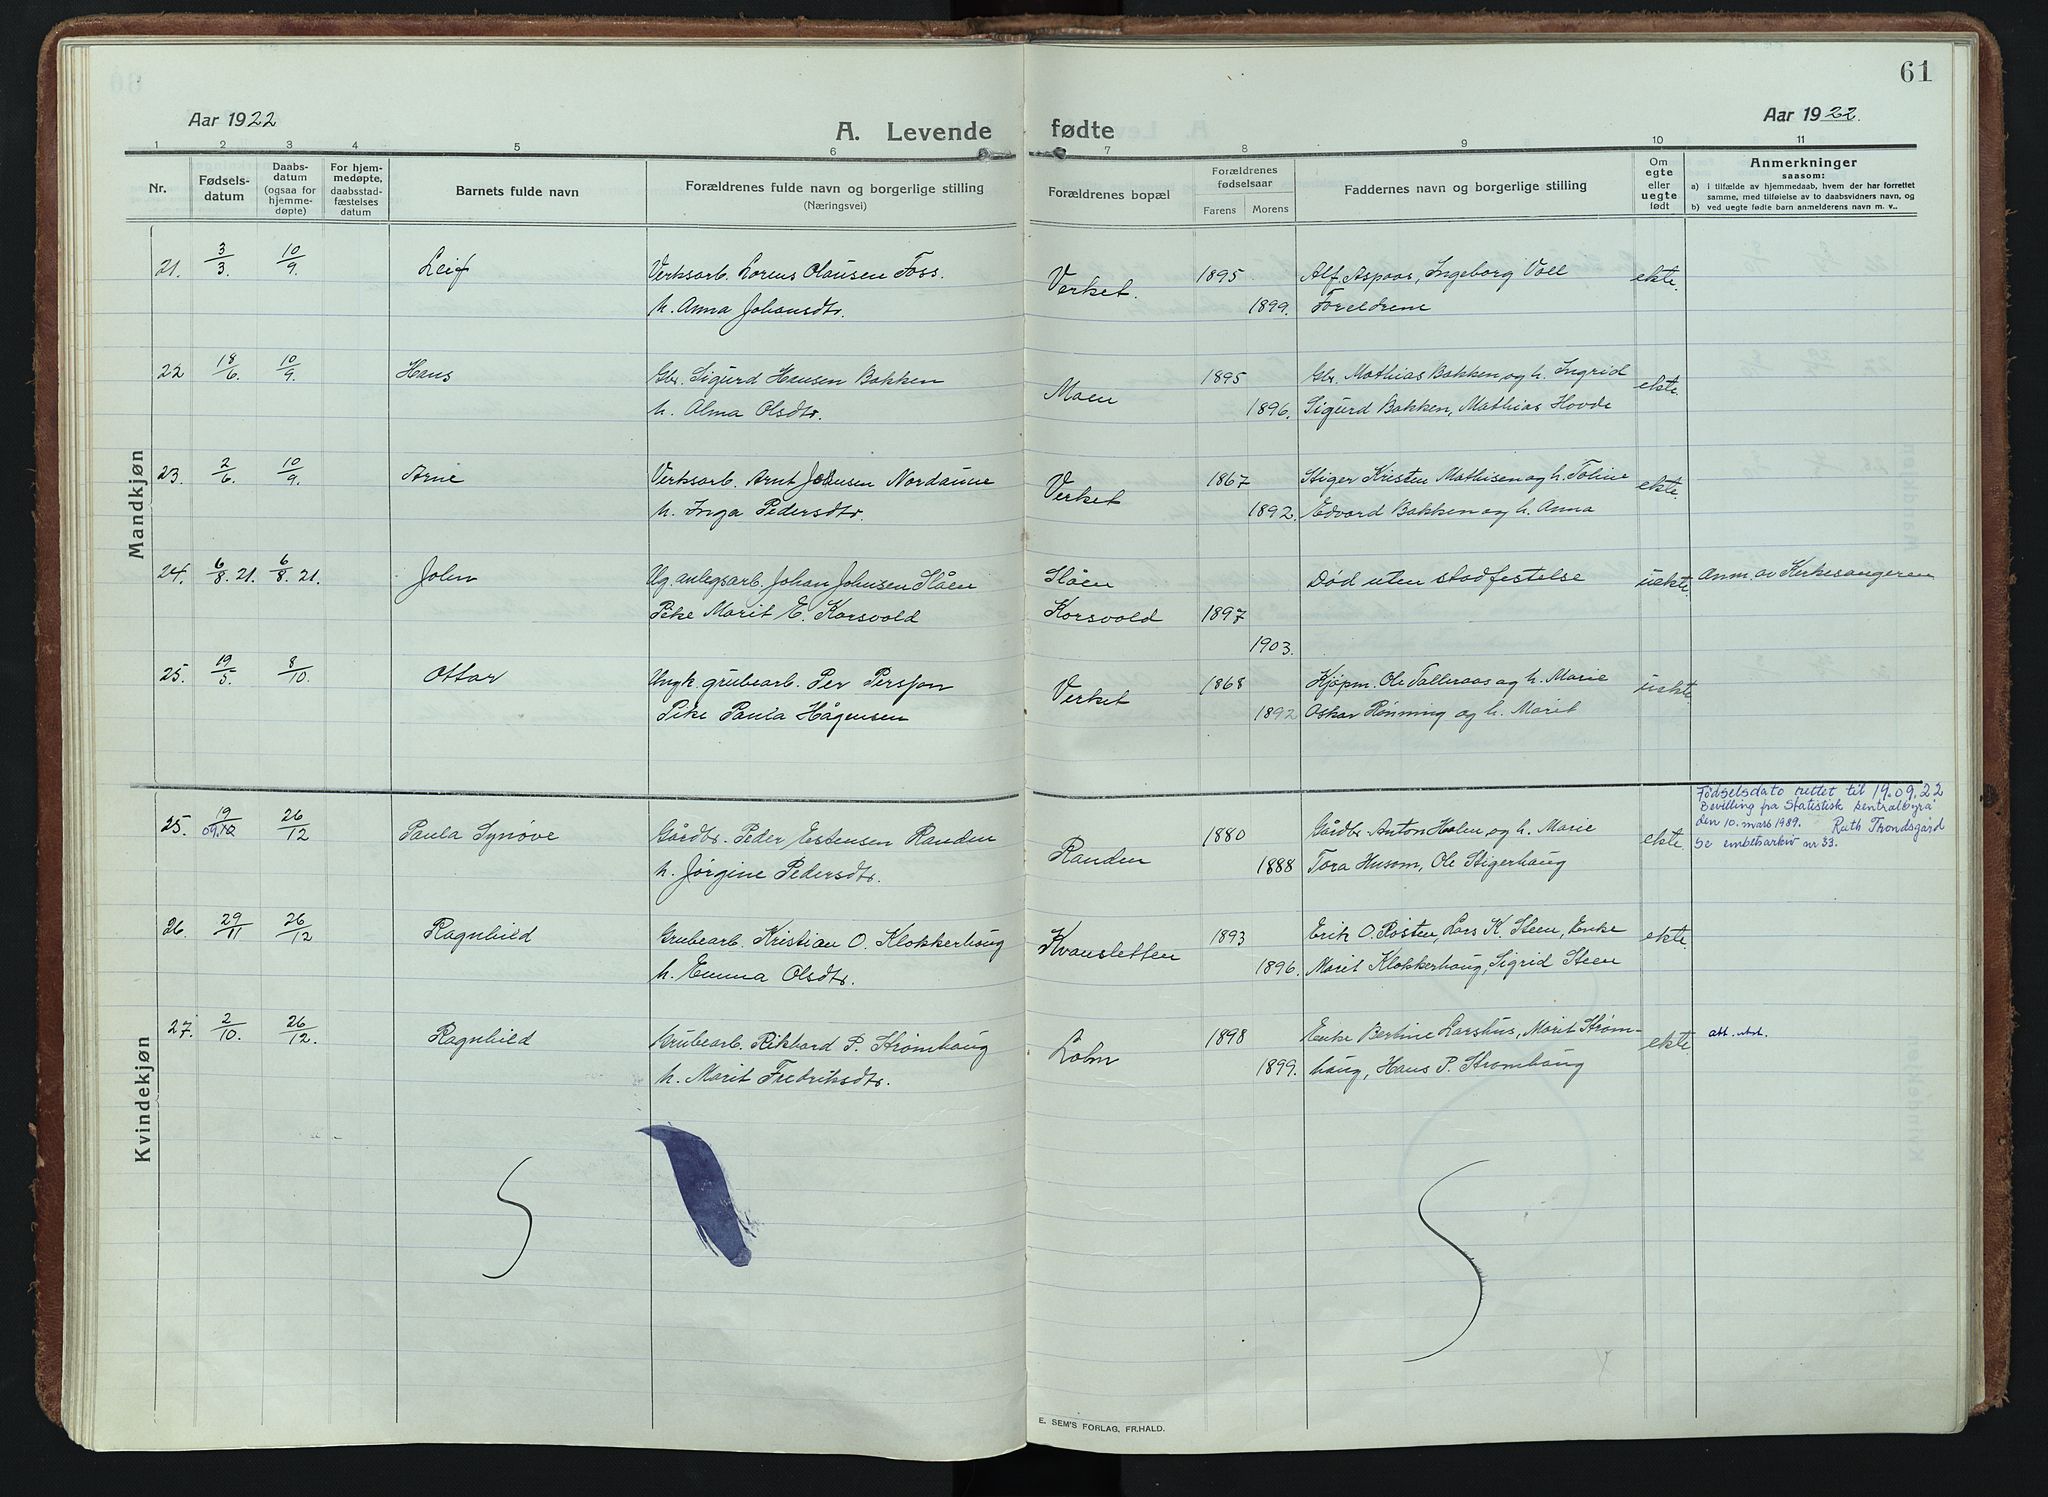 61
Aar 1922
A. Levende fødte
Aar 1922.
1 2 3 4 5 6 7 8 9 10 11
Nr.
Fødsels-
datum
Daabs-
datum
(ogsaa for
hjemme-
døpte)
For hjem-
medøpte,
daabsstad-
fæstelses
datum
Barnets fulde navn
Forældrenes fulde navn og borgerlige stilling
(Næringsvei)
Forældrenes bopæl
Forældrenes
fødselsaar
Farens Morens
Faddernes navn og borgerlige stilling
Om
egte
eller
uegte
født
Anmerkninger
saasom:
a) i tilfælde av hjemmedaab, hvem der har forrettet
samme, med tilføielse av to daabsvidners navn, og
b) ved uegte fødte barn anmelderens navn m. v..
Mandkjøn
21. 3/3. 10/9. Leif Verksarb. Lorens Olausen Foss. Verket. 1895 Alf Aspaas, Ingeborg Voll ekte.
h. Anna Johansdtr. 1899. Foreldrene
22 18/6. 10/9. Hans Gbr. Sigurd Hansen Bakken Moen 1895 Gbr. Mathias Bakken og h. Ingrid ekte.
h. Alma Olsdtr. 1896. Sigurd Bakken, Mathias Hovde
23. 2/6. 10/9. Arne Verksarb. Arnt Johansen Nordaune Verket 1867 Stiger Kristen Mathisen og h. Toline ekte.
h. Inga Pedersdtr. 1892. Edvard Bakken og h. Anna
24. 6/8. 21. 6/8. 21. John Ug. anlegsarb. Johan Johnsen Slåen Slåen Død uten stadfestelse uekte. Anm. av Kirkesangeren
Pike Marit E. Korsvold Korsvold 1897
1903.
25. 19/5. 8/10. Ottar Ungk. grubearb. Per Persson Verket 1868 Kjøpm. Ole Talleraas og h. Marie uekte
Pike Paula Hågensen 1892 Oskar Rønning og h. Marit
Kvindekjøn
25. 19/09.12 26/12 Paula Synøve Gårdbr. Peder Estensen Randen Randen 1880 Gårdbr. Anton Holen, og h. Marie ekte.
h. Jørgine Pedersdtr. 1888 Tora Husom, Ole Stigerhaug
Fødselsdato rettet til 19.09.22
Bevilling fra Statistisk Sentralbyrå
den 10. mars 1989. Ruth Trondsgård
Se embetsarkiv nr 33.
26. 29/11 26/12 Ragnhild Grubearb. Kristian O. Klokkerhaug Kvansletten 1893 Erik O. Røsten, Lars K. Steen, Enke ekte.
h. Emma Olsdtr. 1896. Marit Klokkerhaug, Sigrid Steen
27. 2/10. 26/12. Ragnhild Grubearb. Rikhard P. Strømhaug Lohn 1898 Enke Bertine Larshus, Marit Strøm- ekte. att. utst.
h. Marit Fredriksdtr. 1899. haug, Hans P. Strømhaug
E. SEM'S FORLAG, FR.HALD.